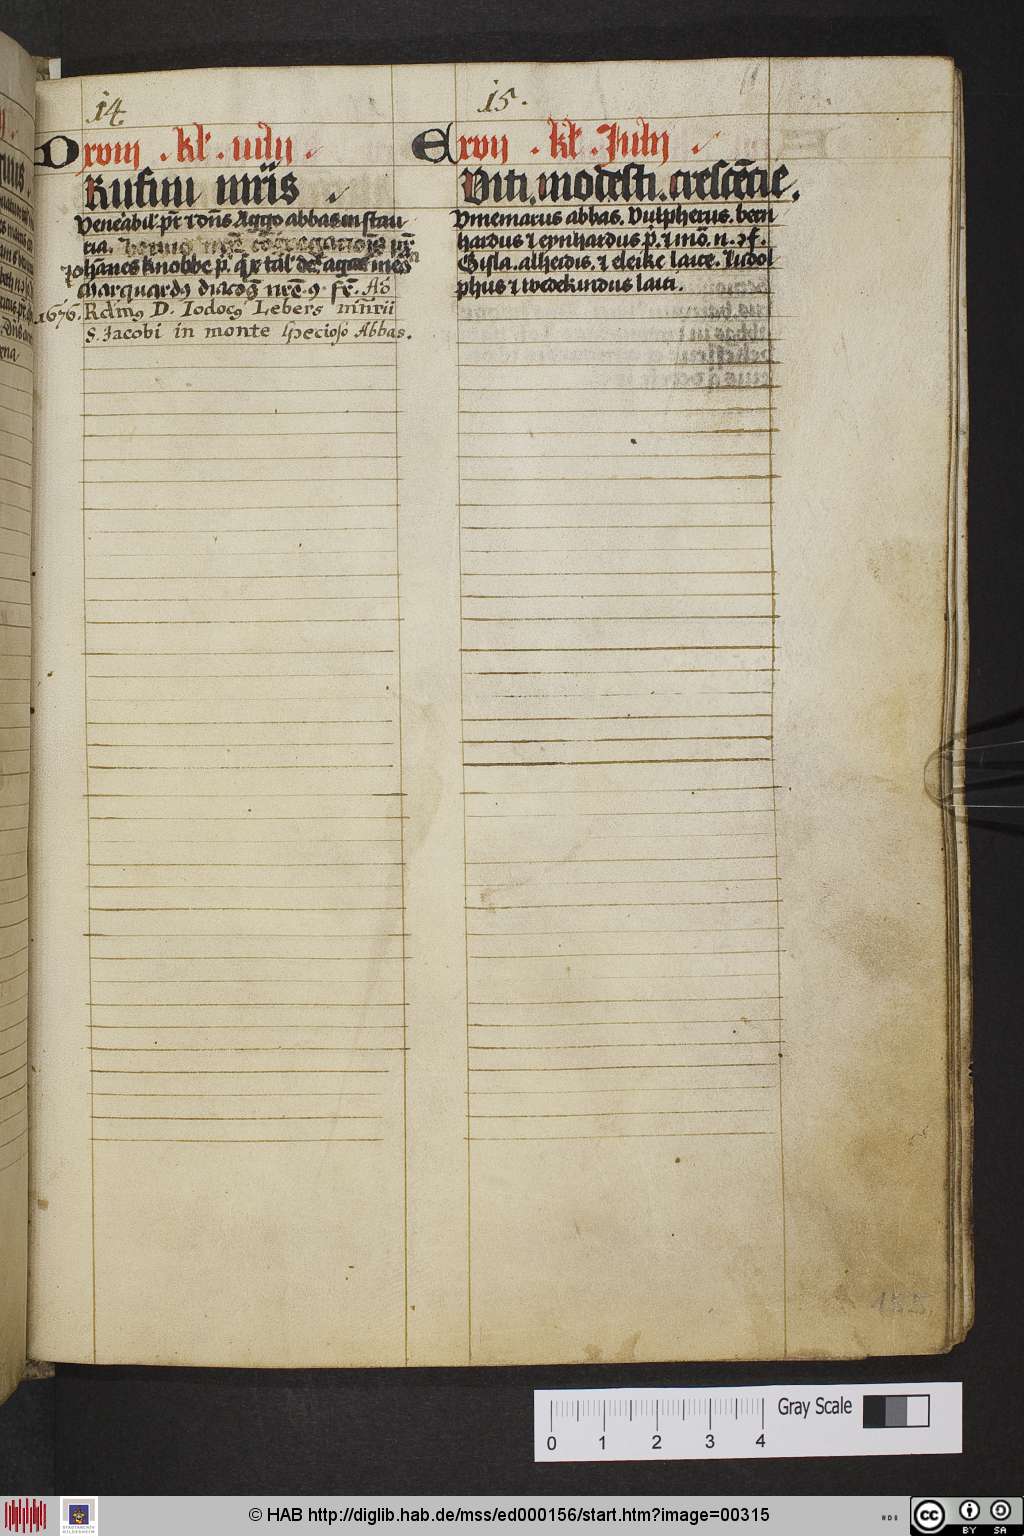 14.
D xviii . kł . iulii .
Rufini mr̄is .
Venerabil' pr̄ ⁊ dn̄s Aggo abbas in stau
ria.
Johānes knobbe p̄r.
Marquardꝯ diacoꝯ nrē ꝯ. fr̄. Ao
1676. Rdm̄ꝯ D. Iodocꝯ Lebers
S. Jacobi in monte specioso Abbas.
15.
E xvii . kł . Julii .
Viti. modesti. crescēcie.
Ymemarus abbas. Vulpherus. bern
hardus ⁊ eynhardus p̄. ⁊ mō. n. ɔ̄. f.
Gisla. alheidis. ⁊ eleike laice. Ludol
phus ⁊ wedekindus laici.
155
0 1 2 3 4
Gray Scale
© HAB http://diglib.hab.de/mss/ed000156/start.htm?image=00315
cc BY SA